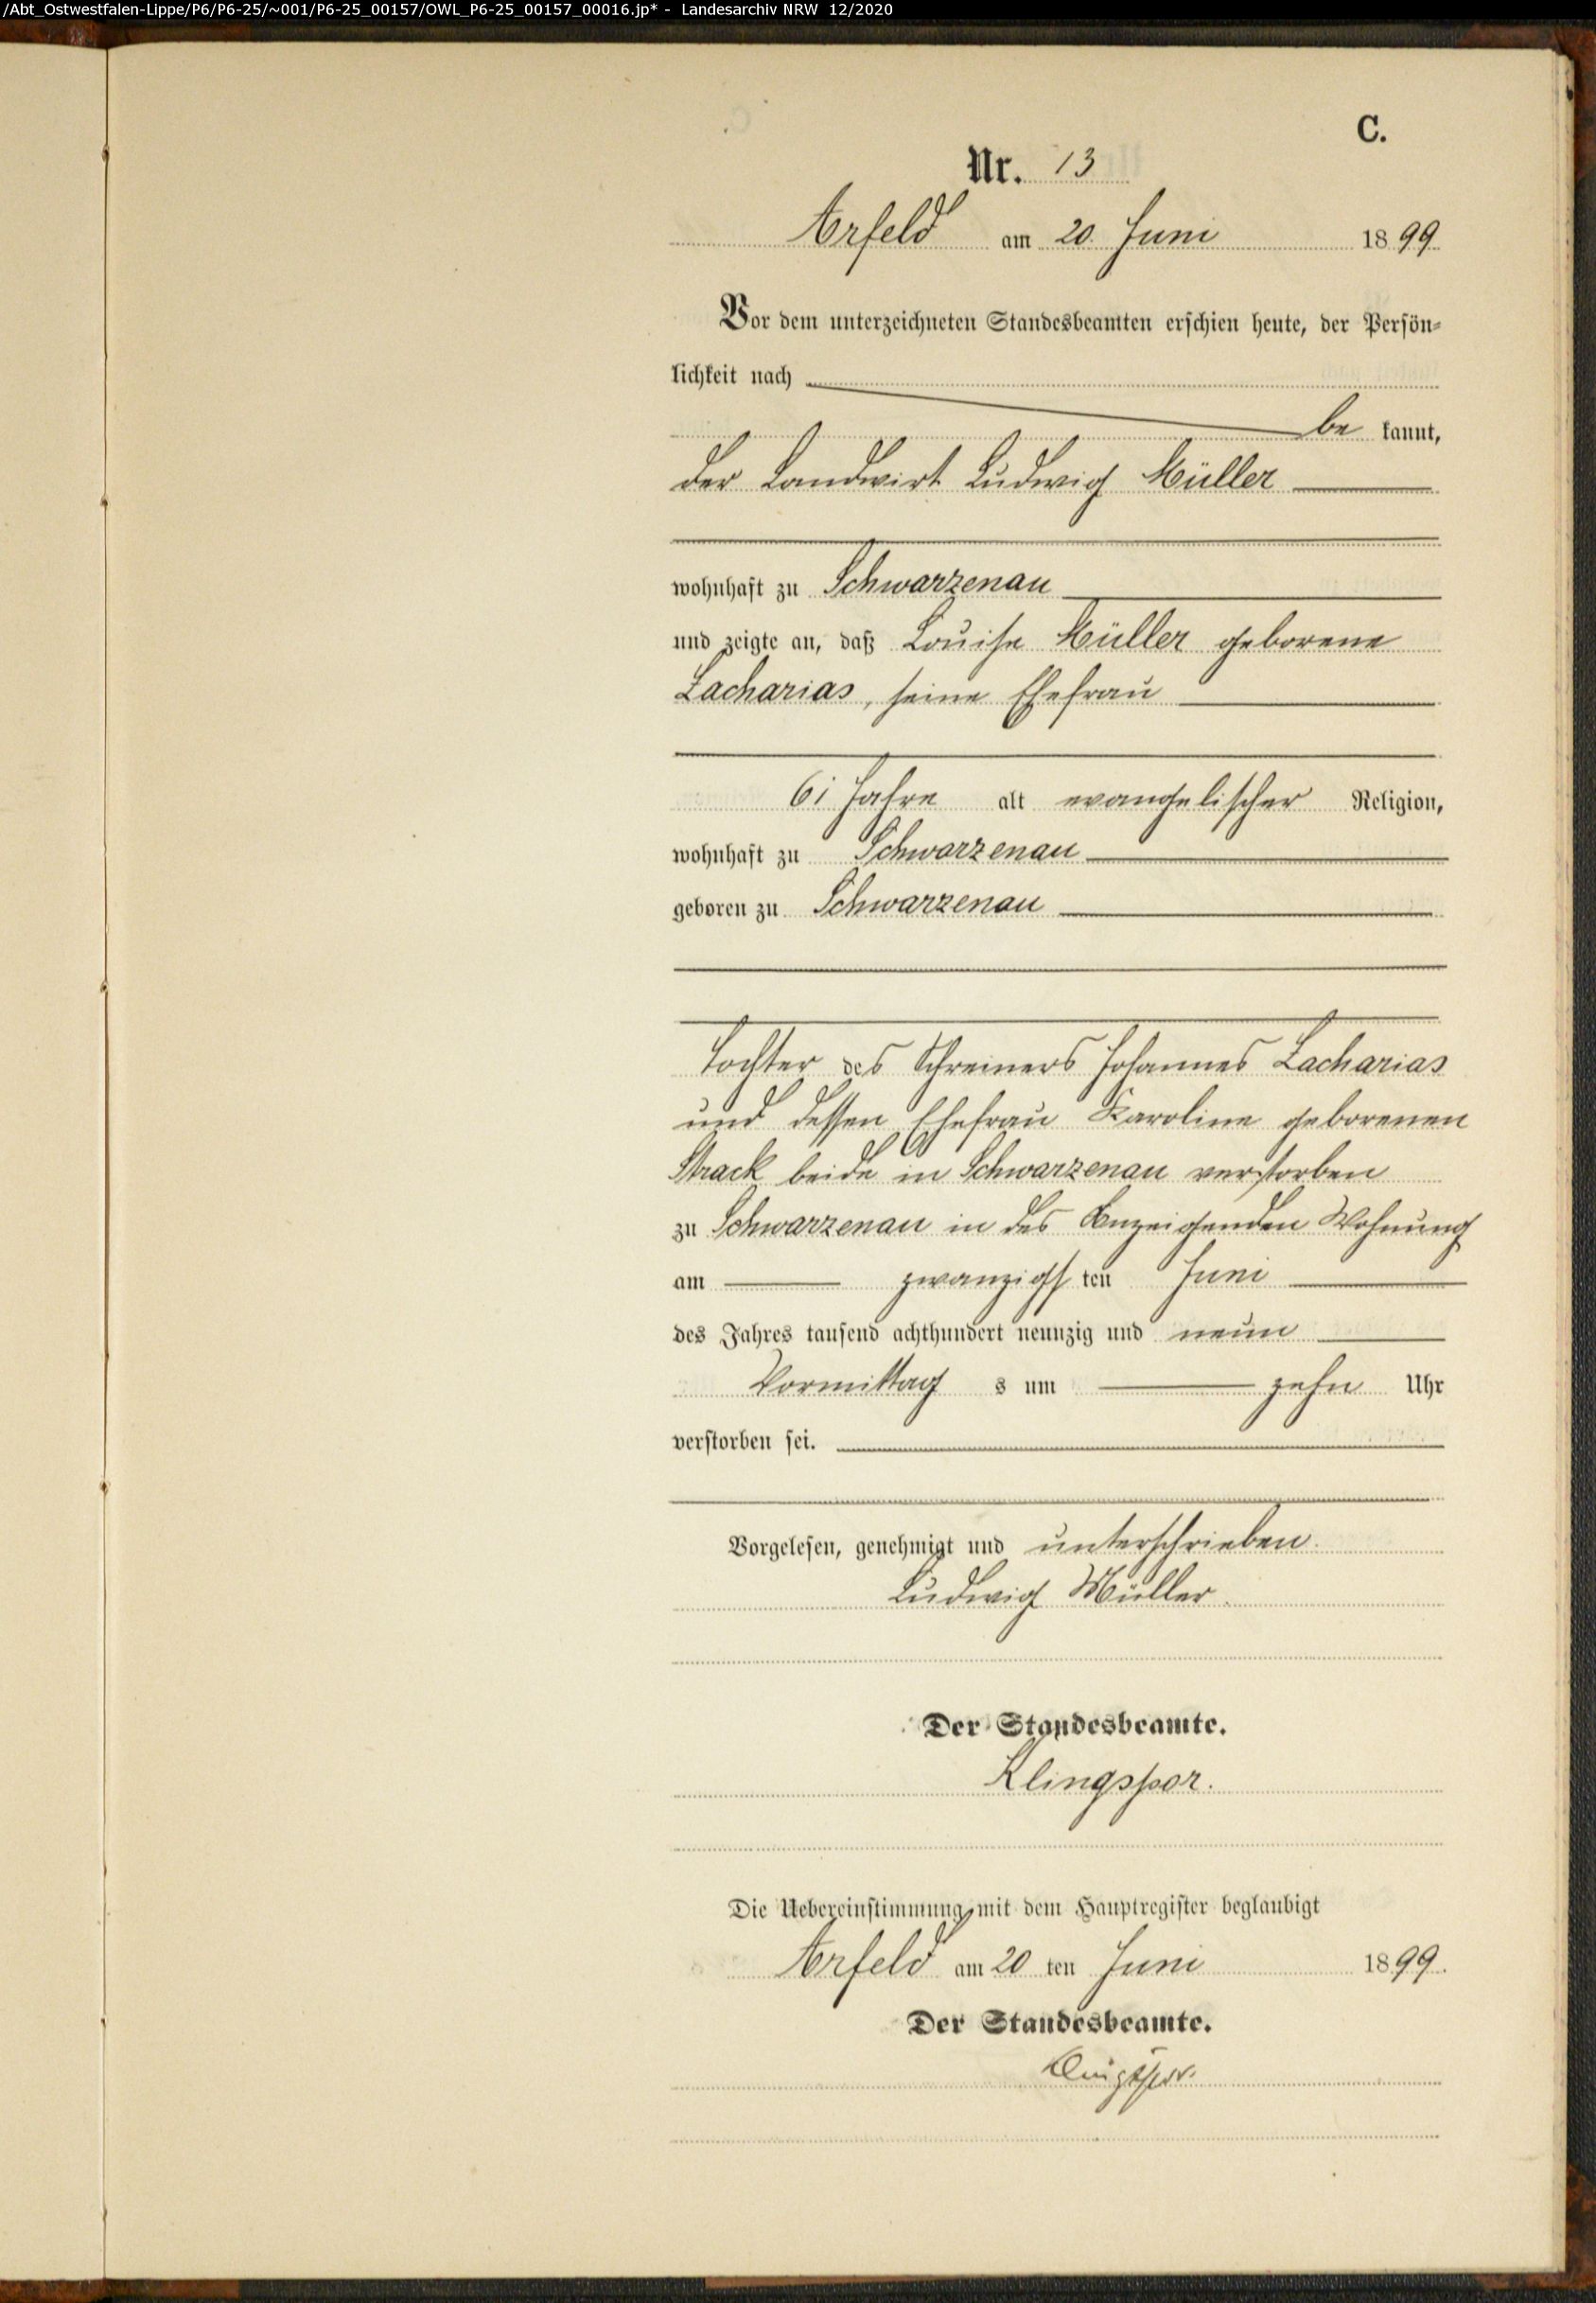 /Abt_Ostwestfalen-Lippe/P6/P6-25/~001/P6-25_00157/OWL_P6-25_00157_00016.jp* - Landesarchiv NRW 12/2020
C.
Nr. 13
Arfeld am 20. Juni 1899.
Vor dem unterzeichneten Standesbeamten erschien heute, der Persön-
lichkeit nach
be kannt,
der Landwirt Ludwig Müller
wohnhaft zu Schwarzenau
und zeigte an, daß Louise Müller geborene
Zacharias, seine Ehefrau
61 Jahre alt evangelischer Religion,
wohnhaft zu Schwarzenau
geboren zu Schwarzenau
Tochter des Schreiners Johannes Zacharias
und dessen Ehefrau Karoline geborenen
Strack beide in Schwarzenau verstorben
zu Schwarzenau in des Anzeigenden Wohnung
am zwanzigsten Juni
des Jahres tausend achthundert neunzig und neun
Vormittag s um zehn Uhr
verstorben sei.
Vorgelesen, genehmigt und unterschrieben.
Ludwig Müller.
Der Standesbeamte.
Klingspor.
Die Uebereinstimmung mit dem Hauptregister beglaubigt
Arfeld am 20 ten Juni 1899.
Der Standesbeamte.
Klingspor.